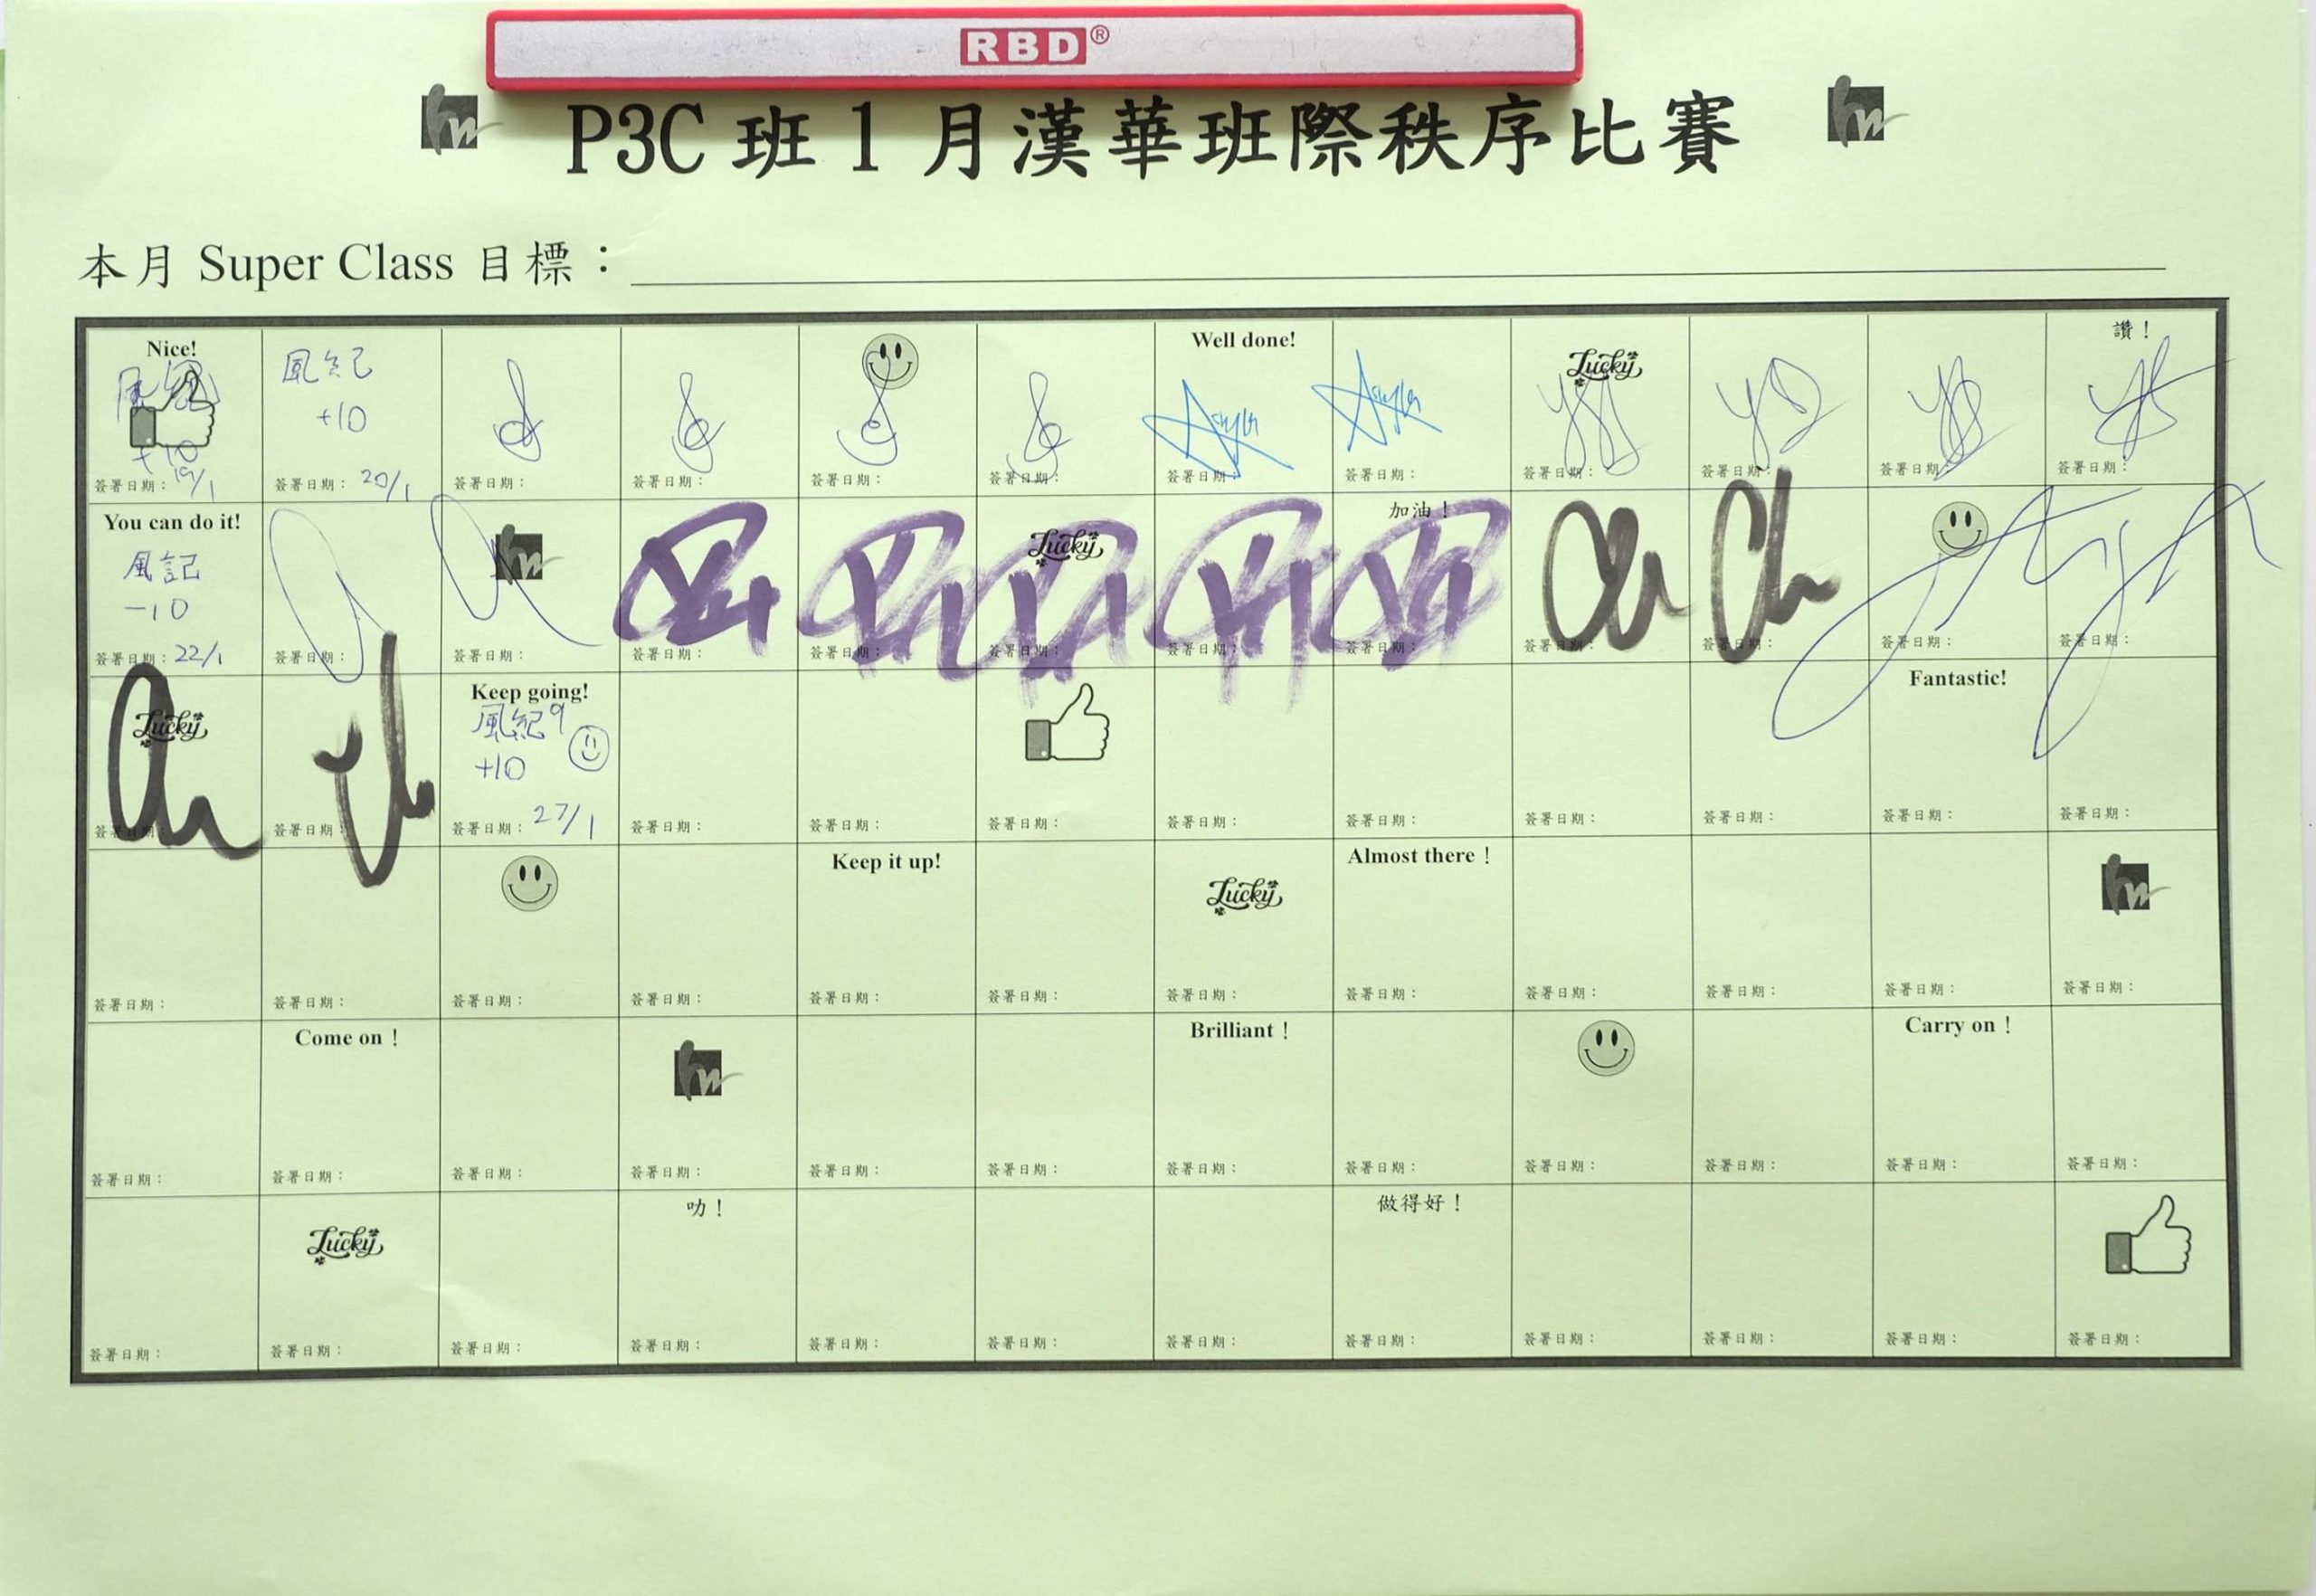 RBD®
P3C 班 1 月漢華班際秩序比賽
本月 Super Class 目標：
Nice!
風紀
+10
簽署日期：19/1
風紀
+10
簽署日期：20/1
簽署日期：
簽署日期：
簽署日期：
簽署日期：
Well done!
簽署日期：
簽署日期：
Lucky
簽署日期：
簽署日期：
簽署日期：
讚！
簽署日期：
You can do it!
風記
-10
簽署日期：22/1
簽署日期：
hw
簽署日期：
簽署日期：
簽署日期：
Lucky
簽署日期：
簽署日期：
加油！
簽署日期：
簽署日期：
簽署日期：
簽署日期：
簽署日期：
Lucky
簽署日期：
簽署日期：
Keep going!
風紀
+10
簽署日期：27/1
簽署日期：
簽署日期：
簽署日期：
簽署日期：
簽署日期：
簽署日期：
簽署日期：
Fantastic!
簽署日期：
簽署日期：
簽署日期：
簽署日期：
簽署日期：
簽署日期：
Keep it up!
簽署日期：
簽署日期：
Lucky
簽署日期：
Almost there！
簽署日期：
簽署日期：
簽署日期：
簽署日期：
hw
簽署日期：
簽署日期：
Come on！
簽署日期：
簽署日期：
hw
簽署日期：
簽署日期：
簽署日期：
Brilliant！
簽署日期：
簽署日期：
簽署日期：
簽署日期：
Carry on！
簽署日期：
簽署日期：
簽署日期：
Lucky
簽署日期：
簽署日期：
叻！
簽署日期：
簽署日期：
簽署日期：
簽署日期：
做得好！
簽署日期：
簽署日期：
簽署日期：
簽署日期：
簽署日期：